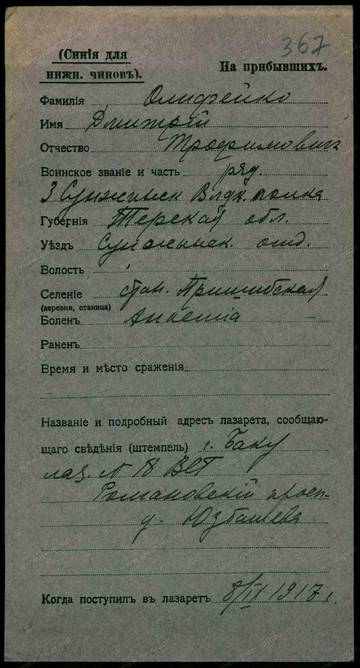 367
(Синія для
нижн. чиновъ).
На прибывшихъ.
Фамилія Олифейко
Имя Дмитрій
Отчество Трофимовичъ
Воинское званіе и часть ряд.
3 Сунженск Влдк. полка
Губернія Терская обл.
Уѣздъ Сунженск. отд.
Волость
Селеніе стан. Пришибская
(деревня, станица)
Боленъ
Раненъ
Время и мѣсто сраженія
Названіе и подробный адресъ лазарета, сообщаю-
щаго свѣдѣнія (штемпель) г. Баку
лаз. N 18 ВСГ
Романовскій просп-
у. Юзбашева
Когда поступилъ въ лазаретъ 8/IX 1917 г.